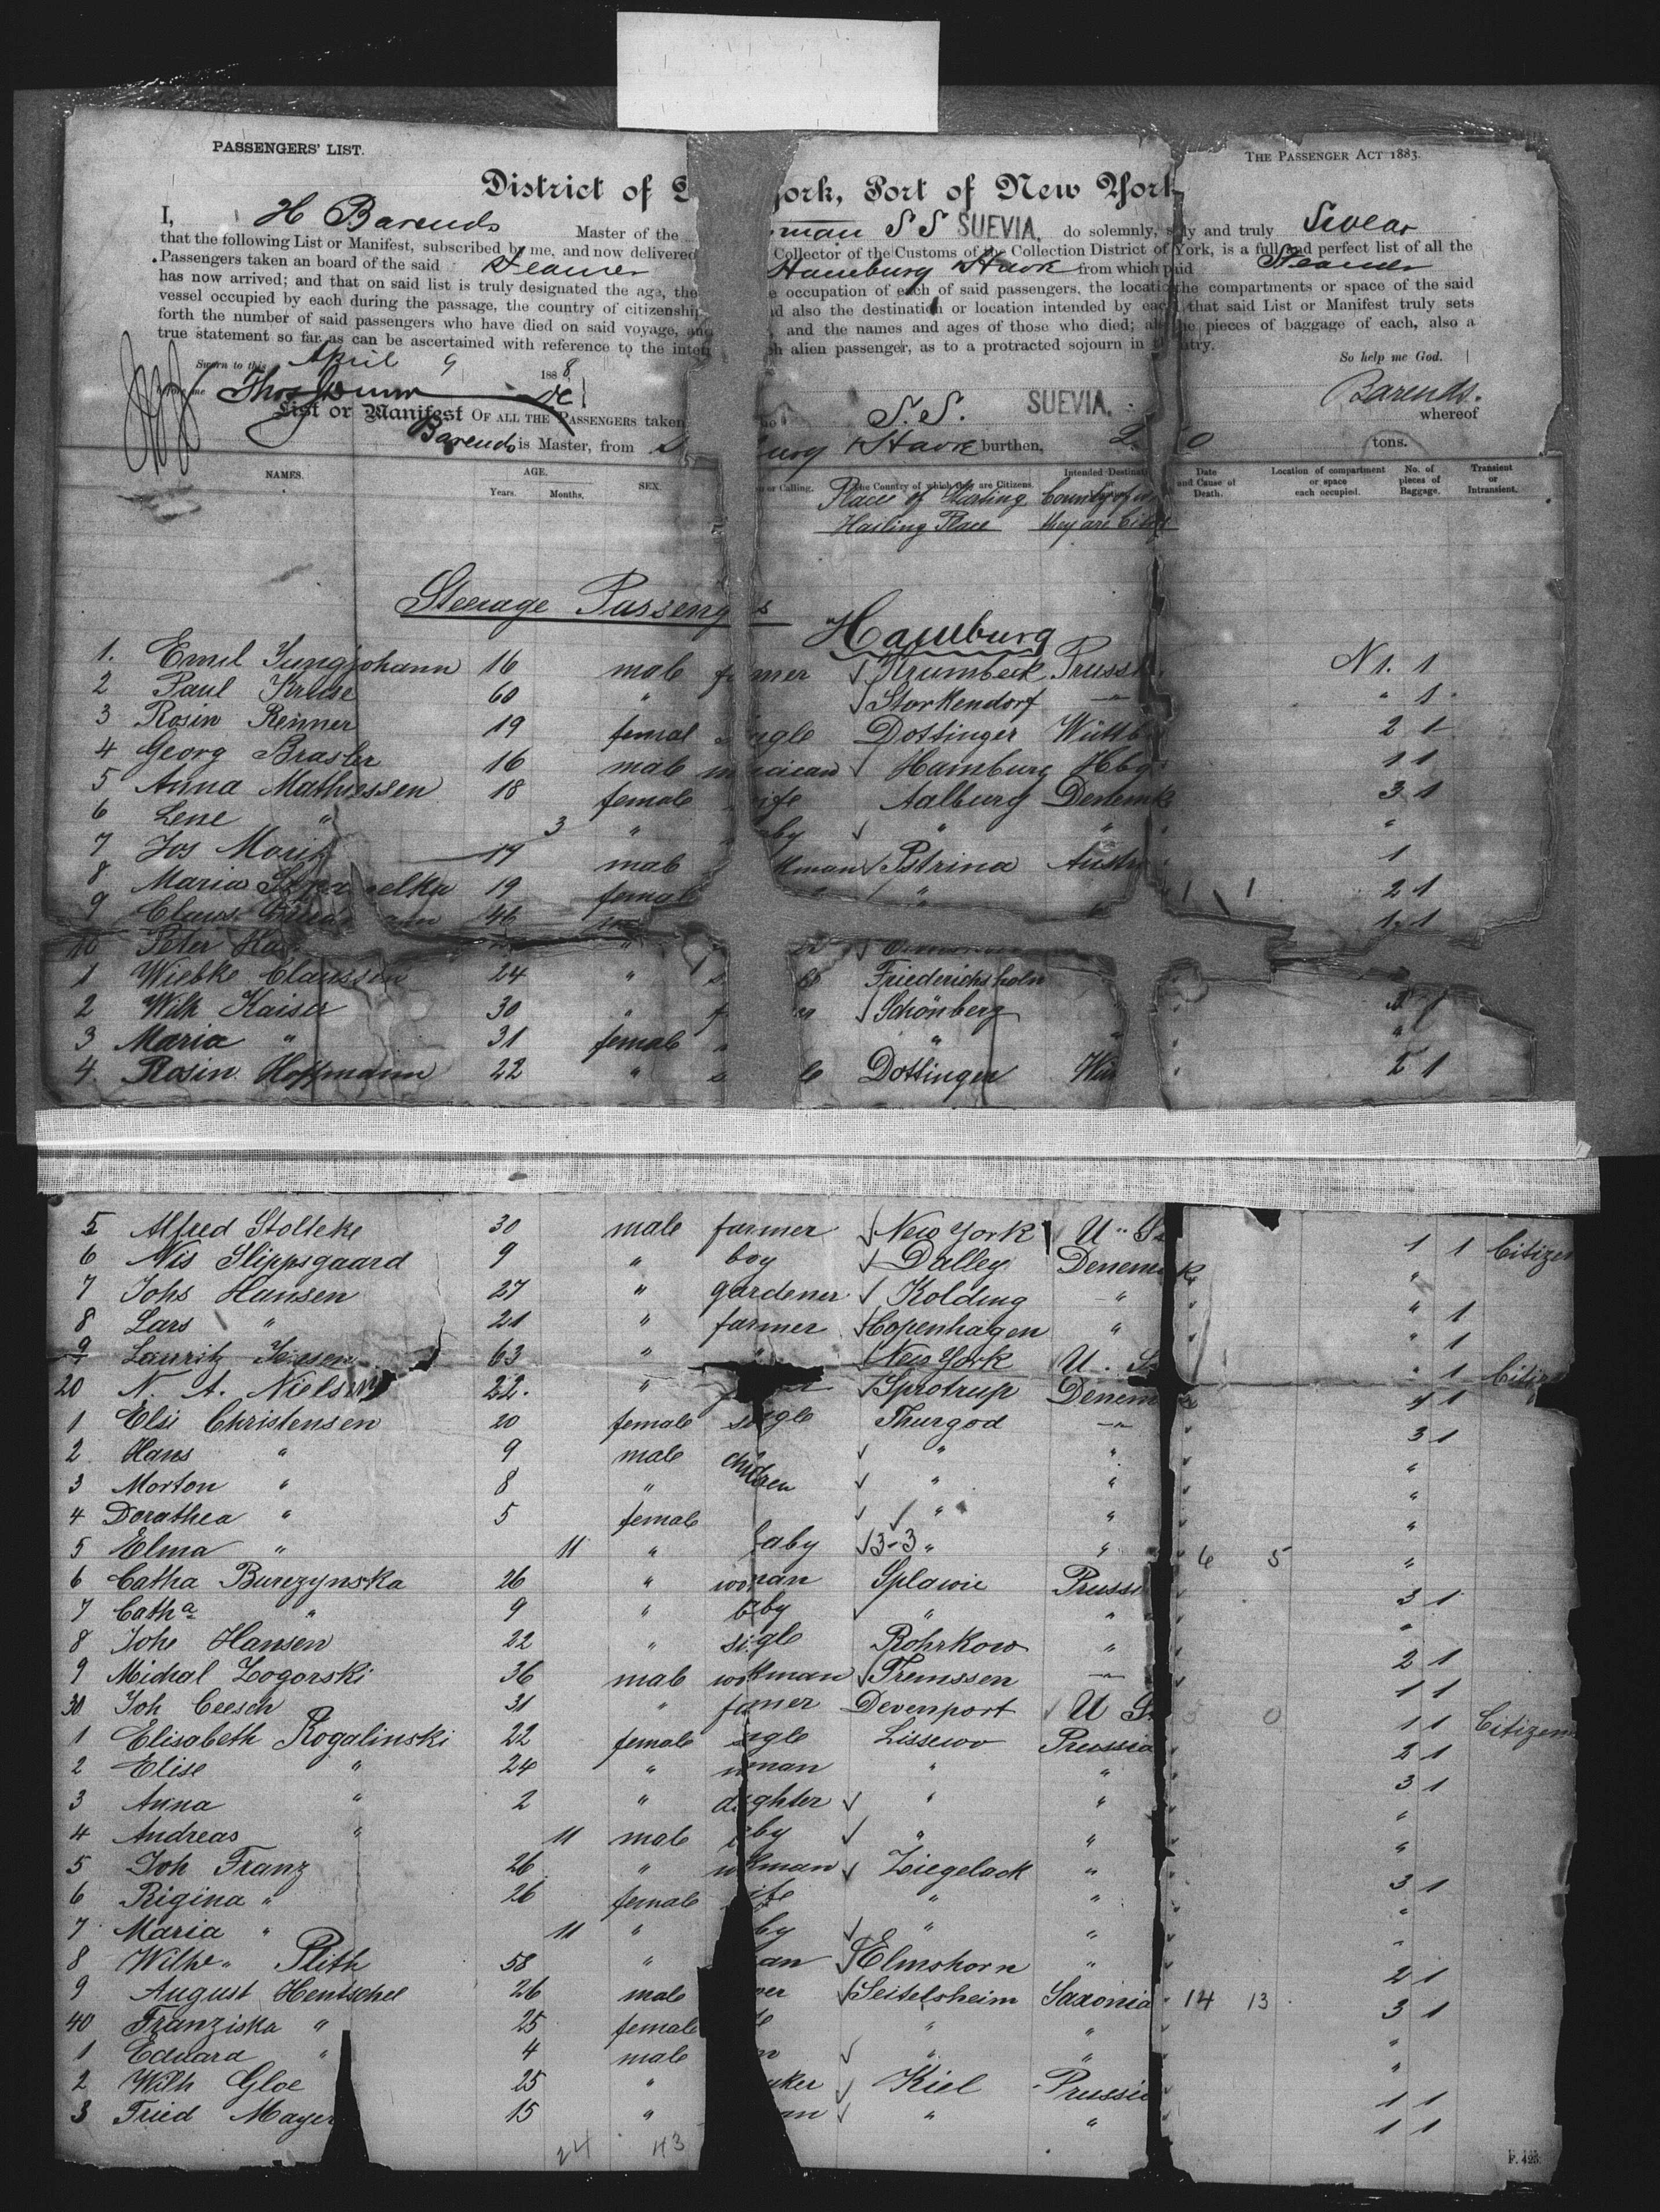 PASSENGERS' LIST.
THE PASSENGER ACT 1883.
District of York, Port of New York
I, H Barends Master of the man S S SUEVIA, do solemnly, and truly Swear
that the following List or Manifest, subscribed by me, and now delivered Collector of the Customs of the Collection District of York, is a full and perfect list of all the
Passengers taken on board of the said Steamer Hamburg Havre from which said Steamer
has now arrived; and that on said list is truly designated the age, the occupation of each of said passengers, the location the compartments or space of the said
vessel occupied by each during the passage, the country of citizenship also the destination or location intended by each that said List or Manifest truly sets
forth the number of said passengers who have died on said voyage, and the names and ages of those who died; the pieces of baggage of each, also a
true statement so far as can be ascertained with reference to the alien passenger, as to a protracted sojourn in
So help me God.
Sworn to this April 9 1888
Barends.
List or Manifest OF ALL THE PASSENGERS taken S.S. SUEVIA. whereof
Barends is Master, from Havre burthen, tons.
NAMES. AGE. Years. Months. SEX. or Calling. The Country of which they are Citizens. Intended Date and Cause of Death. Location of compartment or space each occupied. No. of pieces of Baggage. Transient or Intransient.
Place of Starting
Hailing Place they are
Steerage Hamburg
1. Emil Jungjohann 16 male Krumbeck N 1. 1
2 Paul Kruse 60 " Storkendorf " 1
3 Rosin Renner 19 Dottinger 2 1
4 Georg Brasler 16 male Hamburg Hbg 1 1
5 Anna Mathiessen 18 female Aalburg Denemk 3 1
6 Lene " 3 " " " "
7 Jos 19 male Pstrina 1
8 Maria 19 female " " 1 1 2 1
9 Claus 46 1 1
10 Peter
1 Wiebke Claussen 24 " Friederichsholm
2 Wilh Kaiser 30 " Schönberg 3 1
3 Maria " 31 female " " "
4 Rosin Hoffmann 22 " Dottinger 2 1
5 Alfred Stolteke 30 male farmer New York U. S. 1 1 Citizen
6 Nis Slippsgaard 9 " boy Dalley Denemark "
7 Johs Hansen 27 " gardener Kolding " " 1
8 Lars " 21 " farmer Copenhagen " " 1
9 Lauritz 63 " " New York U. S. " 1
20 N. A. Nielsen 22. " Sprotrup 1 1
1 Elsi Christensen 20 female single Thurgod " 3 1
2 Hans " 9 male children " " "
3 Morton " 8 " " " "
4 Dorathea " 5 female " " "
5 Elma " 11 " baby 3-3 " " 6 5 "
6 Catha Burezynska 26 " woman Splawie Prussi 3 1
7 Catha " 9 " " " "
8 Johe Hansen 22 " single Rohrkow " 2 1
9 Michal Zogorski 36 male workman Tremssen " 1 1
30 Joh Ceesch 31 " farmer Devenport U S 0 1 1 Citizen
1 Elisabeth Rogalinski 22 female single Lissewo Prussia 2 1
2 Elise " 24 " woman " " 3 1
3 Anna " 2 " daughter " " "
4 Andreas " 11 male baby " " "
5 Joh Franz 26 " workman Ziegelack " 3 1
6 Rigina " 26 female " " "
7 Maria " 11 " " " "
8 Wilhe Plith 58 " Elmshorn " 2 1
9 August Hentschel 26 male Seitelsheim Saxonia 14 13 3 1
40 Franziska " 25 female " " "
1 Eduard " 4 male " " "
2 Wilh Gloe 25 " Kiel Prussia 1 1
3 Fried Mayer 15 " " " 1 1
24 43
F. 425.